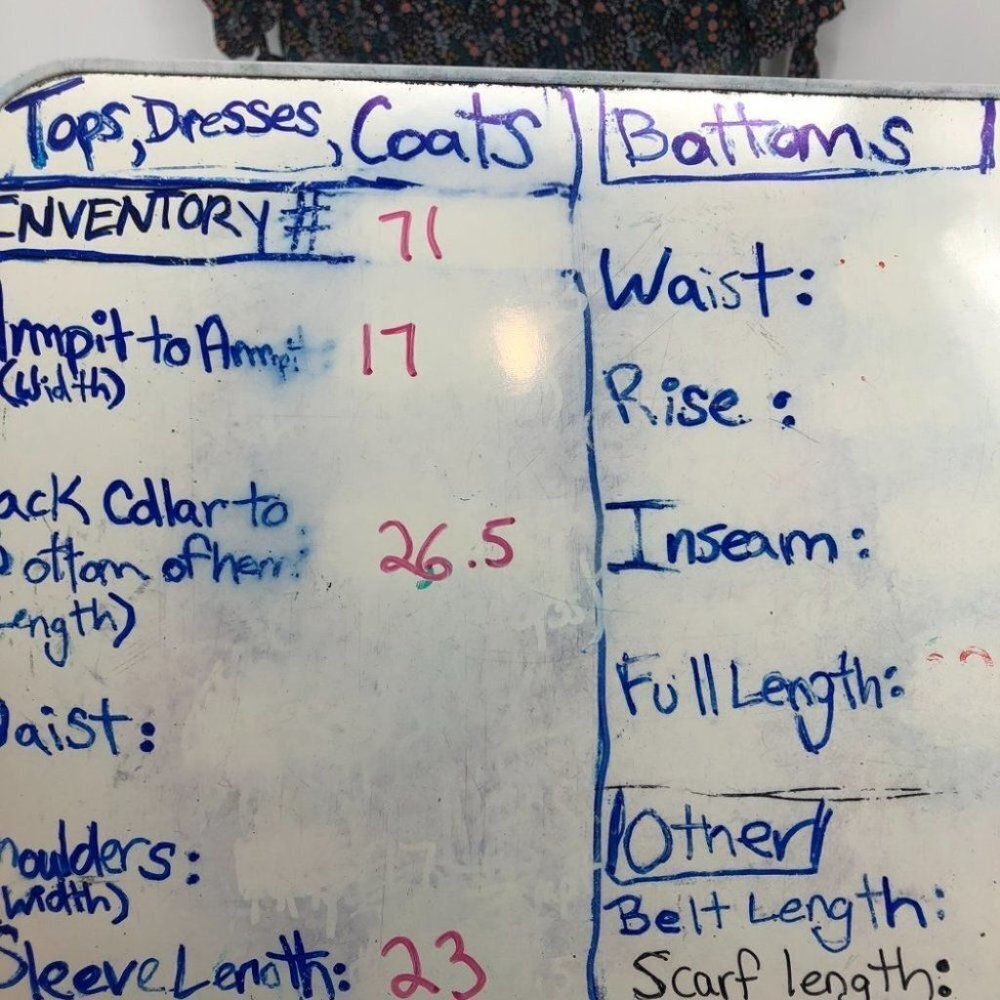 Tops, Dresses, Coats
INVENTORY # 71
Armpit to Armpit 17
(Width)
Back Collar to
Bottom of hem: 26.5
Length)
Waist:
Shoulders:
(Width)
Sleeve Length: 23
Bottoms
Waist:
Rise:
Inseam:
Full Length:
Other
Belt Length:
Scarf length: